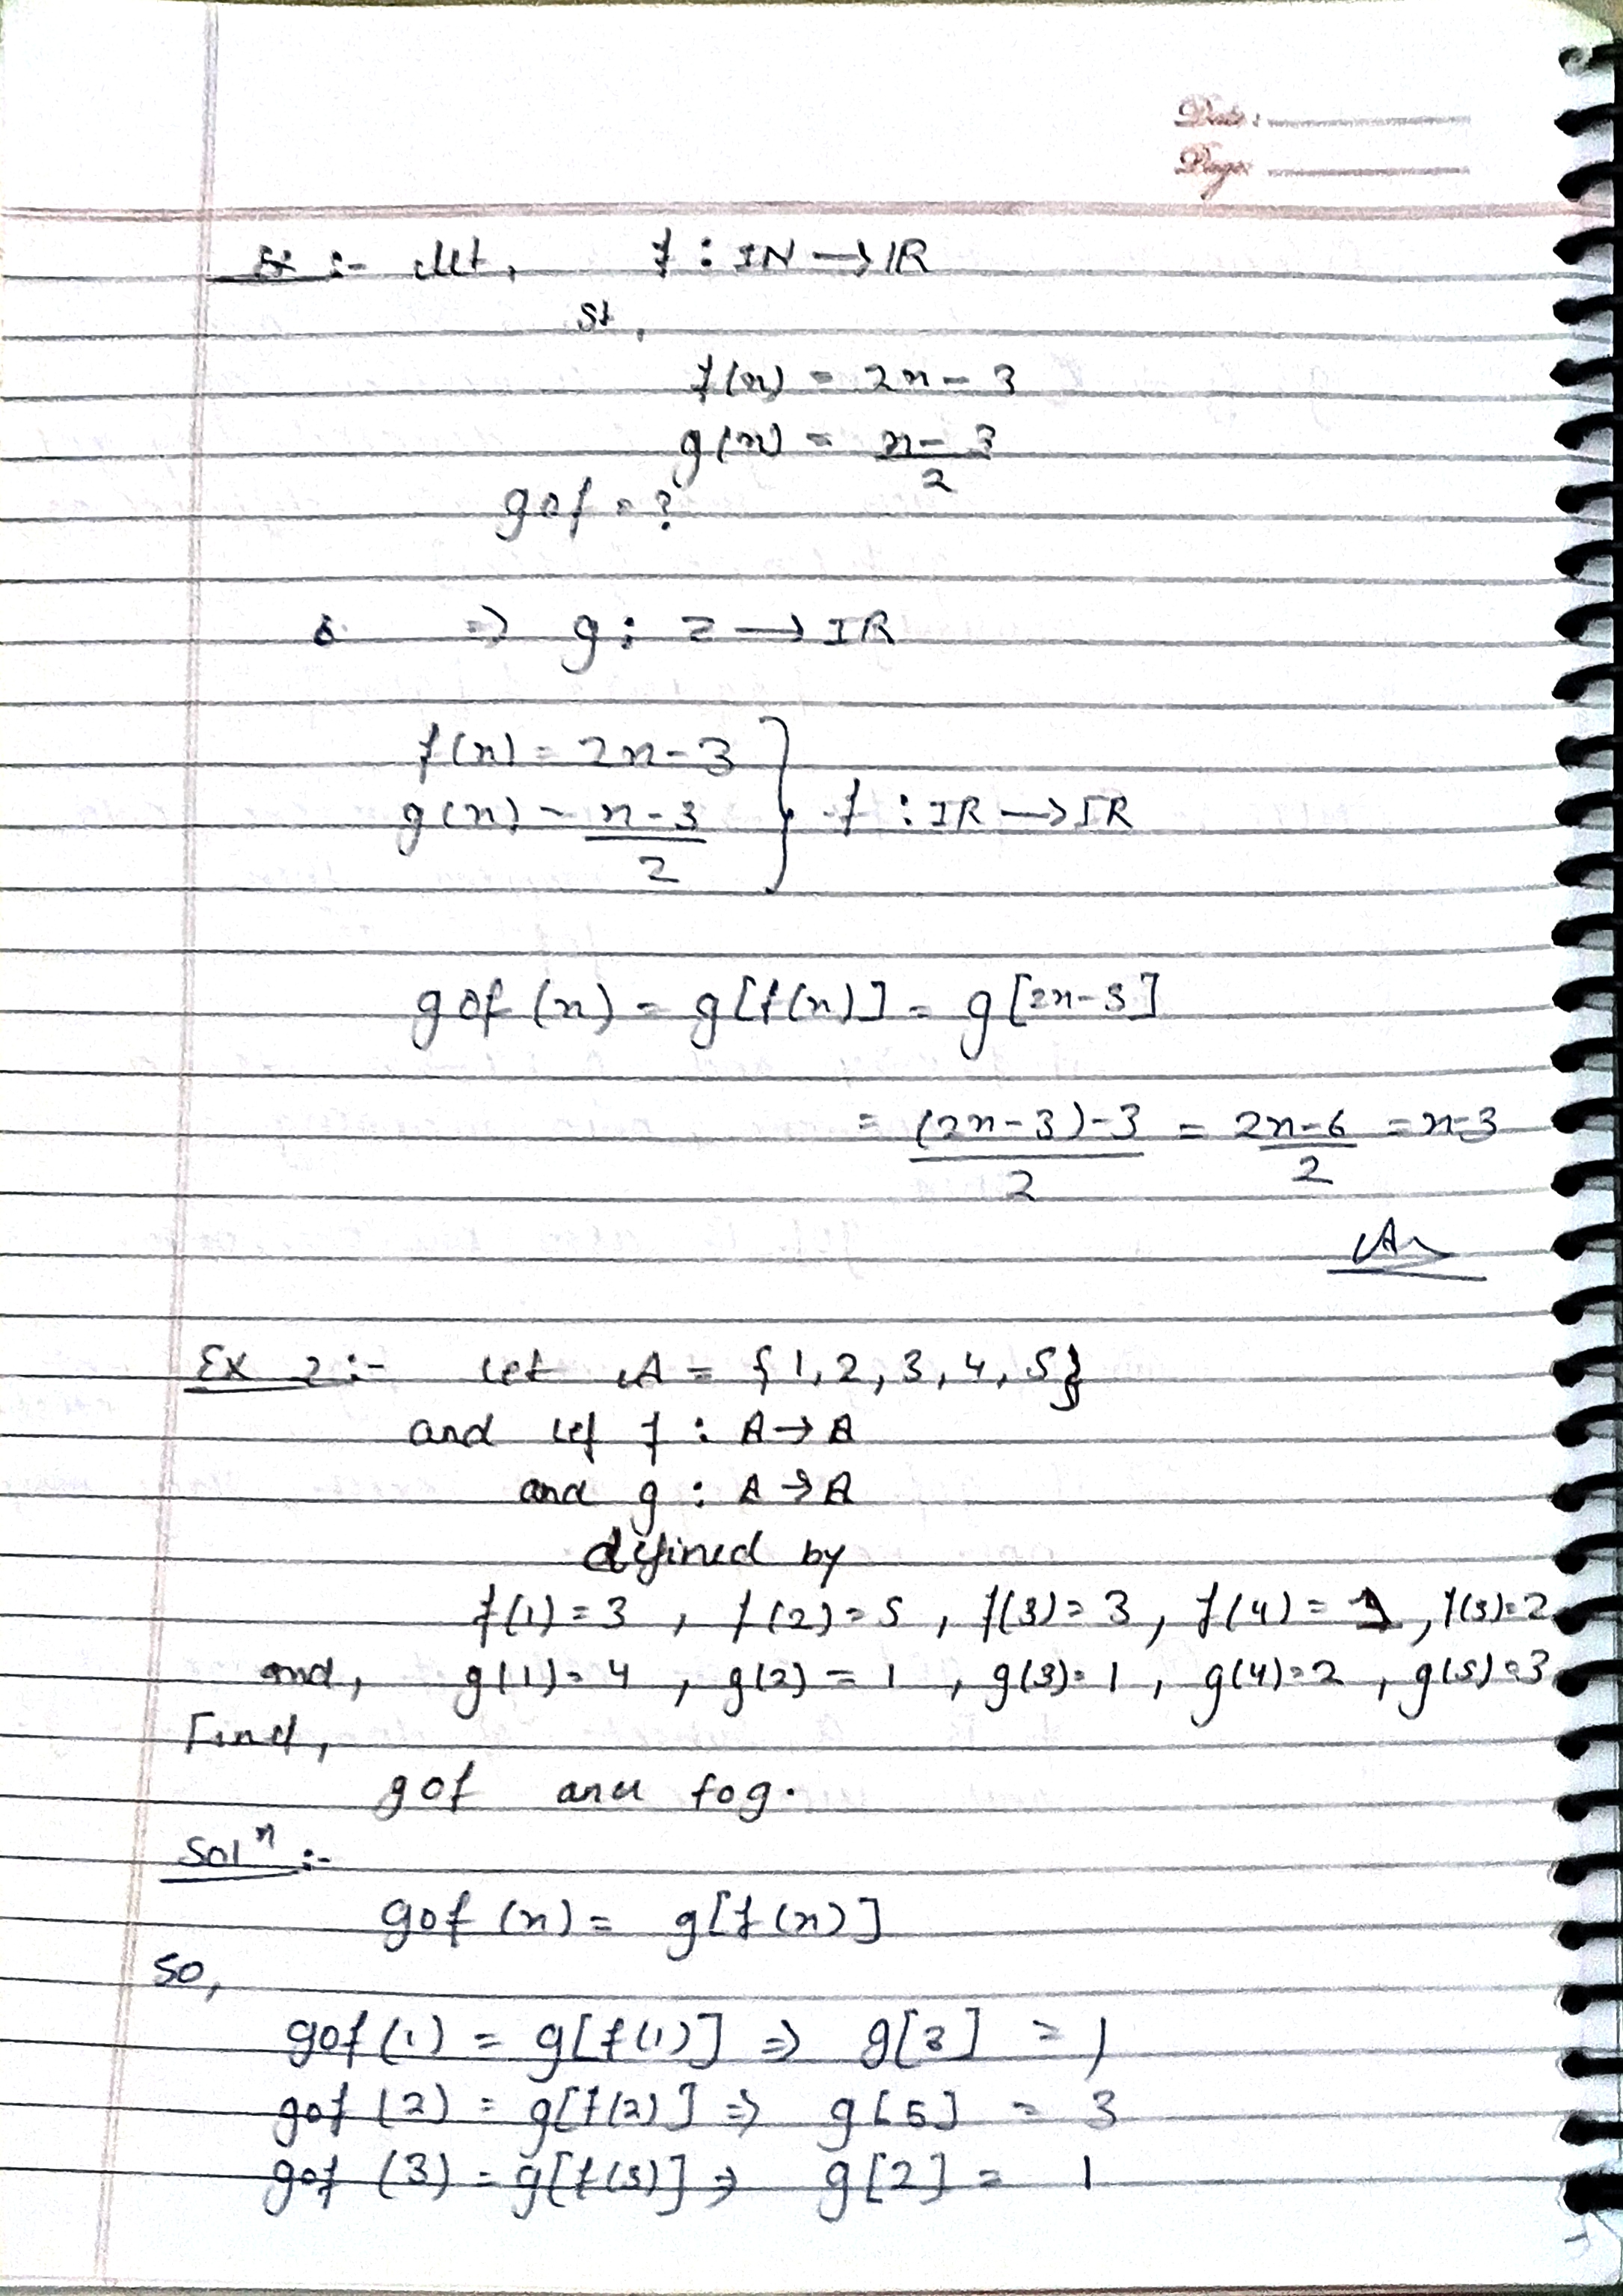 Date:
Page:
Ex :- Let, f : IN → IR
St,
f(n) = 2n - 3
g(n) = n-3/2
gof = ?
⇒ g : Z → IR
f(n) = 2n-3
g(n) = n-3/2 } f : IR → IR
gof (n) = g[f(n)] = g[2n-3]
= (2n-3)-3/2 = 2n-6/2 = n-3
An
Ex 2 :- Let A = {1, 2, 3, 4, 5}
and let f : A → A
and g : A → A
defined by
f(1) = 3 , f(2) = 5 , f(3) = 3 , f(4) = 1 , f(5) = 2
and, g(1) = 4 , g(2) = 1 , g(3) = 1 , g(4) = 2 , g(5) = 3
Find,
gof and fog.
Solⁿ :-
gof (n) = g[f(n)]
So,
gof (1) = g[f(1)] ⇒ g[3] = 1
gof (2) = g[f(2)] ⇒ g[5] = 3
gof (3) = g[f(3)] ⇒ g[2] = 1